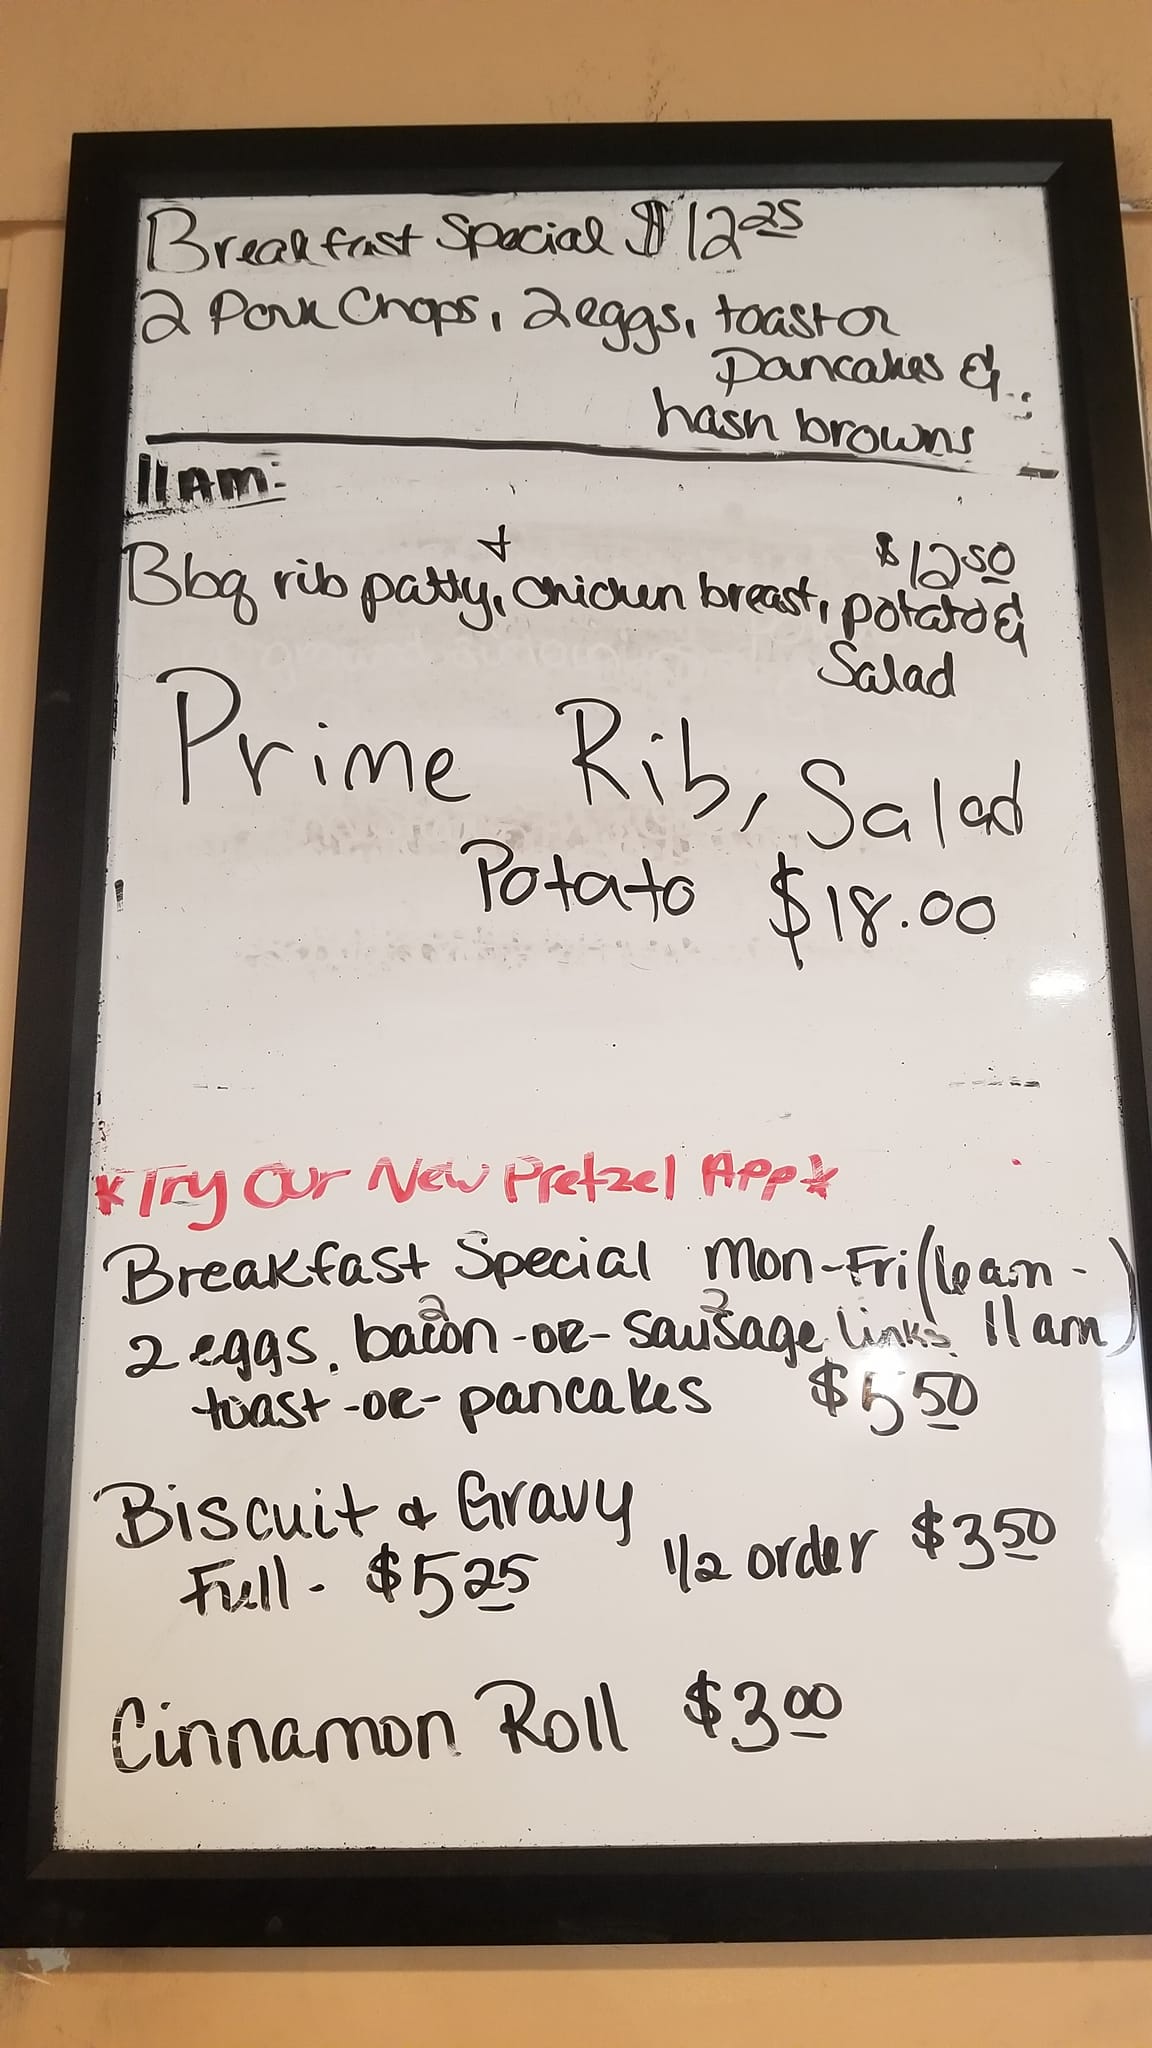 Breakfast Special $12 25
2 Pork Chops, 2 eggs, toast or
Pancakes &
hash browns
11AM:
Bbq rib patty, + chicken breast, potato & $12 50
Salad
Prime Rib, Salad
Potato $18.00
*Try Our New Pretzel App*
Breakfast Special Mon-Fri (6am -
2 eggs, 2 bacon -OR- 2 sausage links 11am)
toast -OR- pancakes $5 50
Biscuit & Gravy
Full - $5 25 1/2 order $3 50
Cinnamon Roll $3 00